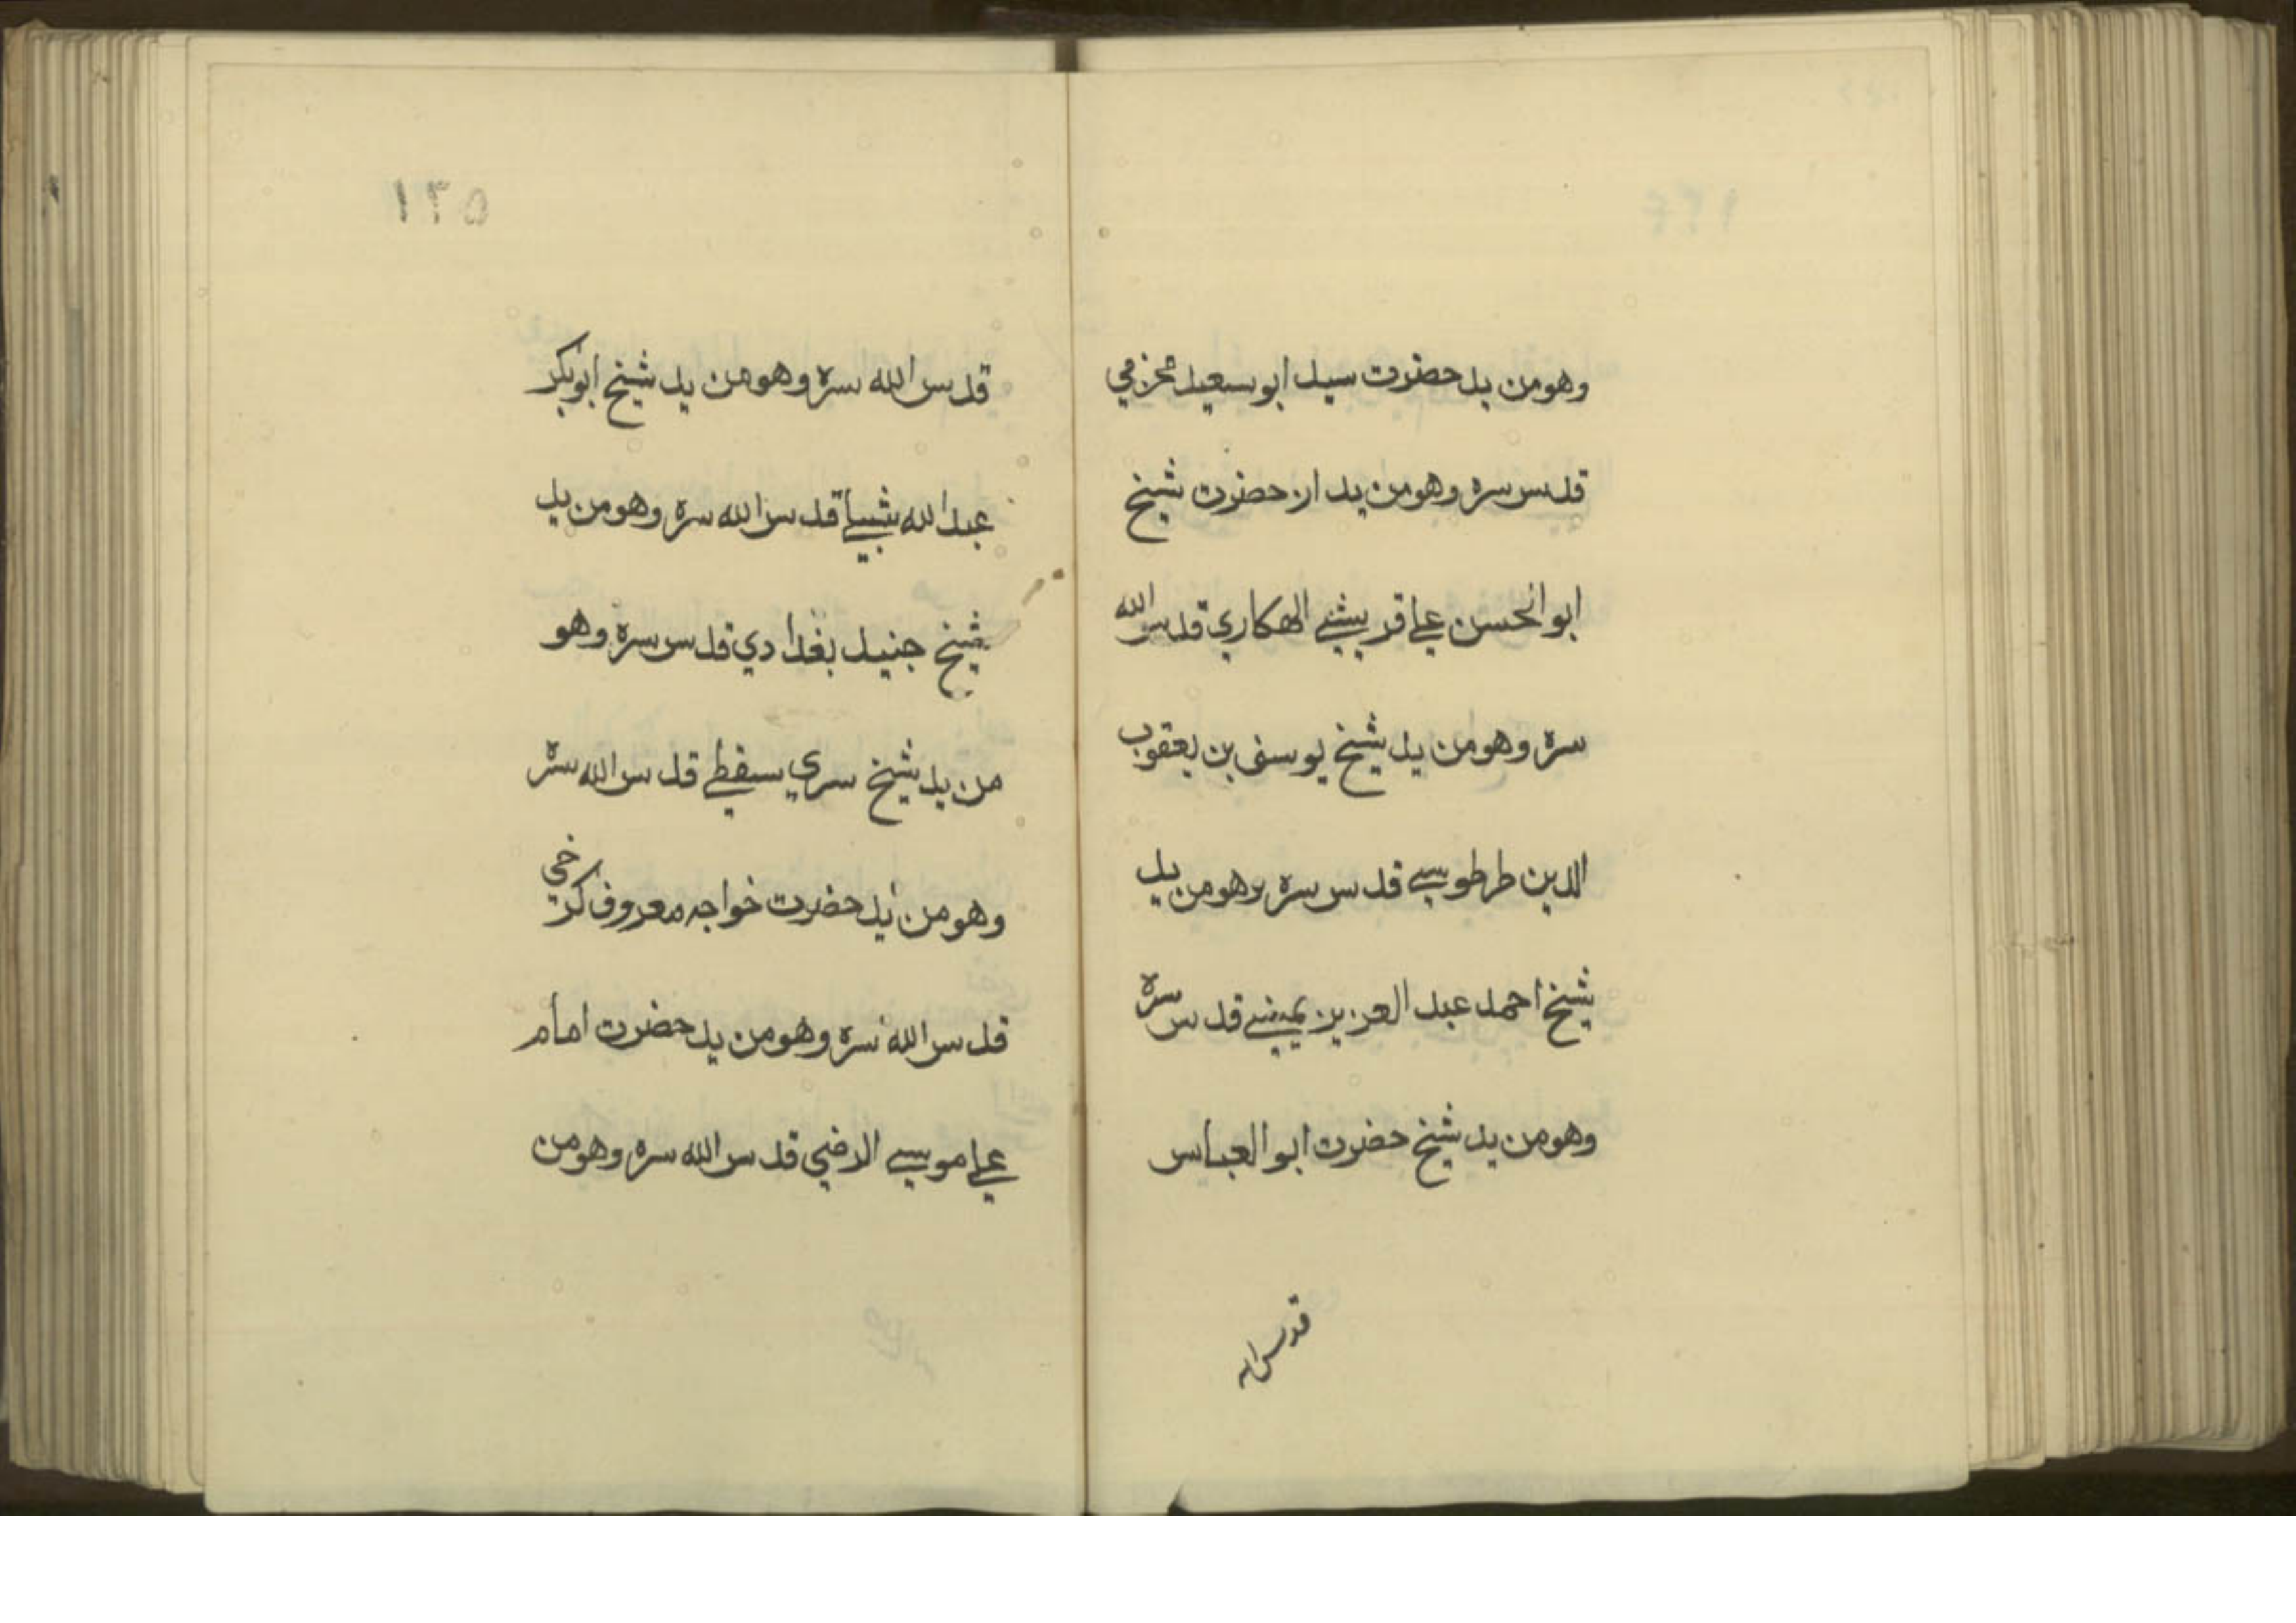 وهومن يد حضرت سيد ابو سعيد مخزمي
قدس سره وهومن يد از حضرت شيخ
ابوالحسن علي قريشي الهكاري قدس الله
سره وهومن يد شيخ يوسف بن يعقوب
الدين طرطوسي قدس سره وهومن يد
شيخ احمد عبد العزيز يمني قدس سره
وهومن يد شيخ حضرت ابو العباس
١٣٥
قدس الله سره وهومن يد شيخ ابوبكر
عبد الله شبلي قدس الله سره وهومن يد
شيخ جنيد بغدادي قدس سره وهو
من يد شيخ سري سقطي قدس الله سره
وهومن يد حضرت خواجه معروف كرخي
قدس الله سره وهومن يد حضرت امام
علي موسي الرضي قدس الله سره وهومن